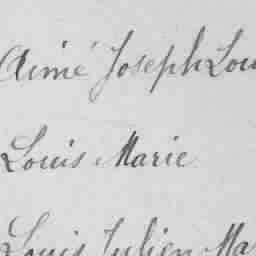 Aimé Joseph Lou
Louis Marie
Louis Julien Ma